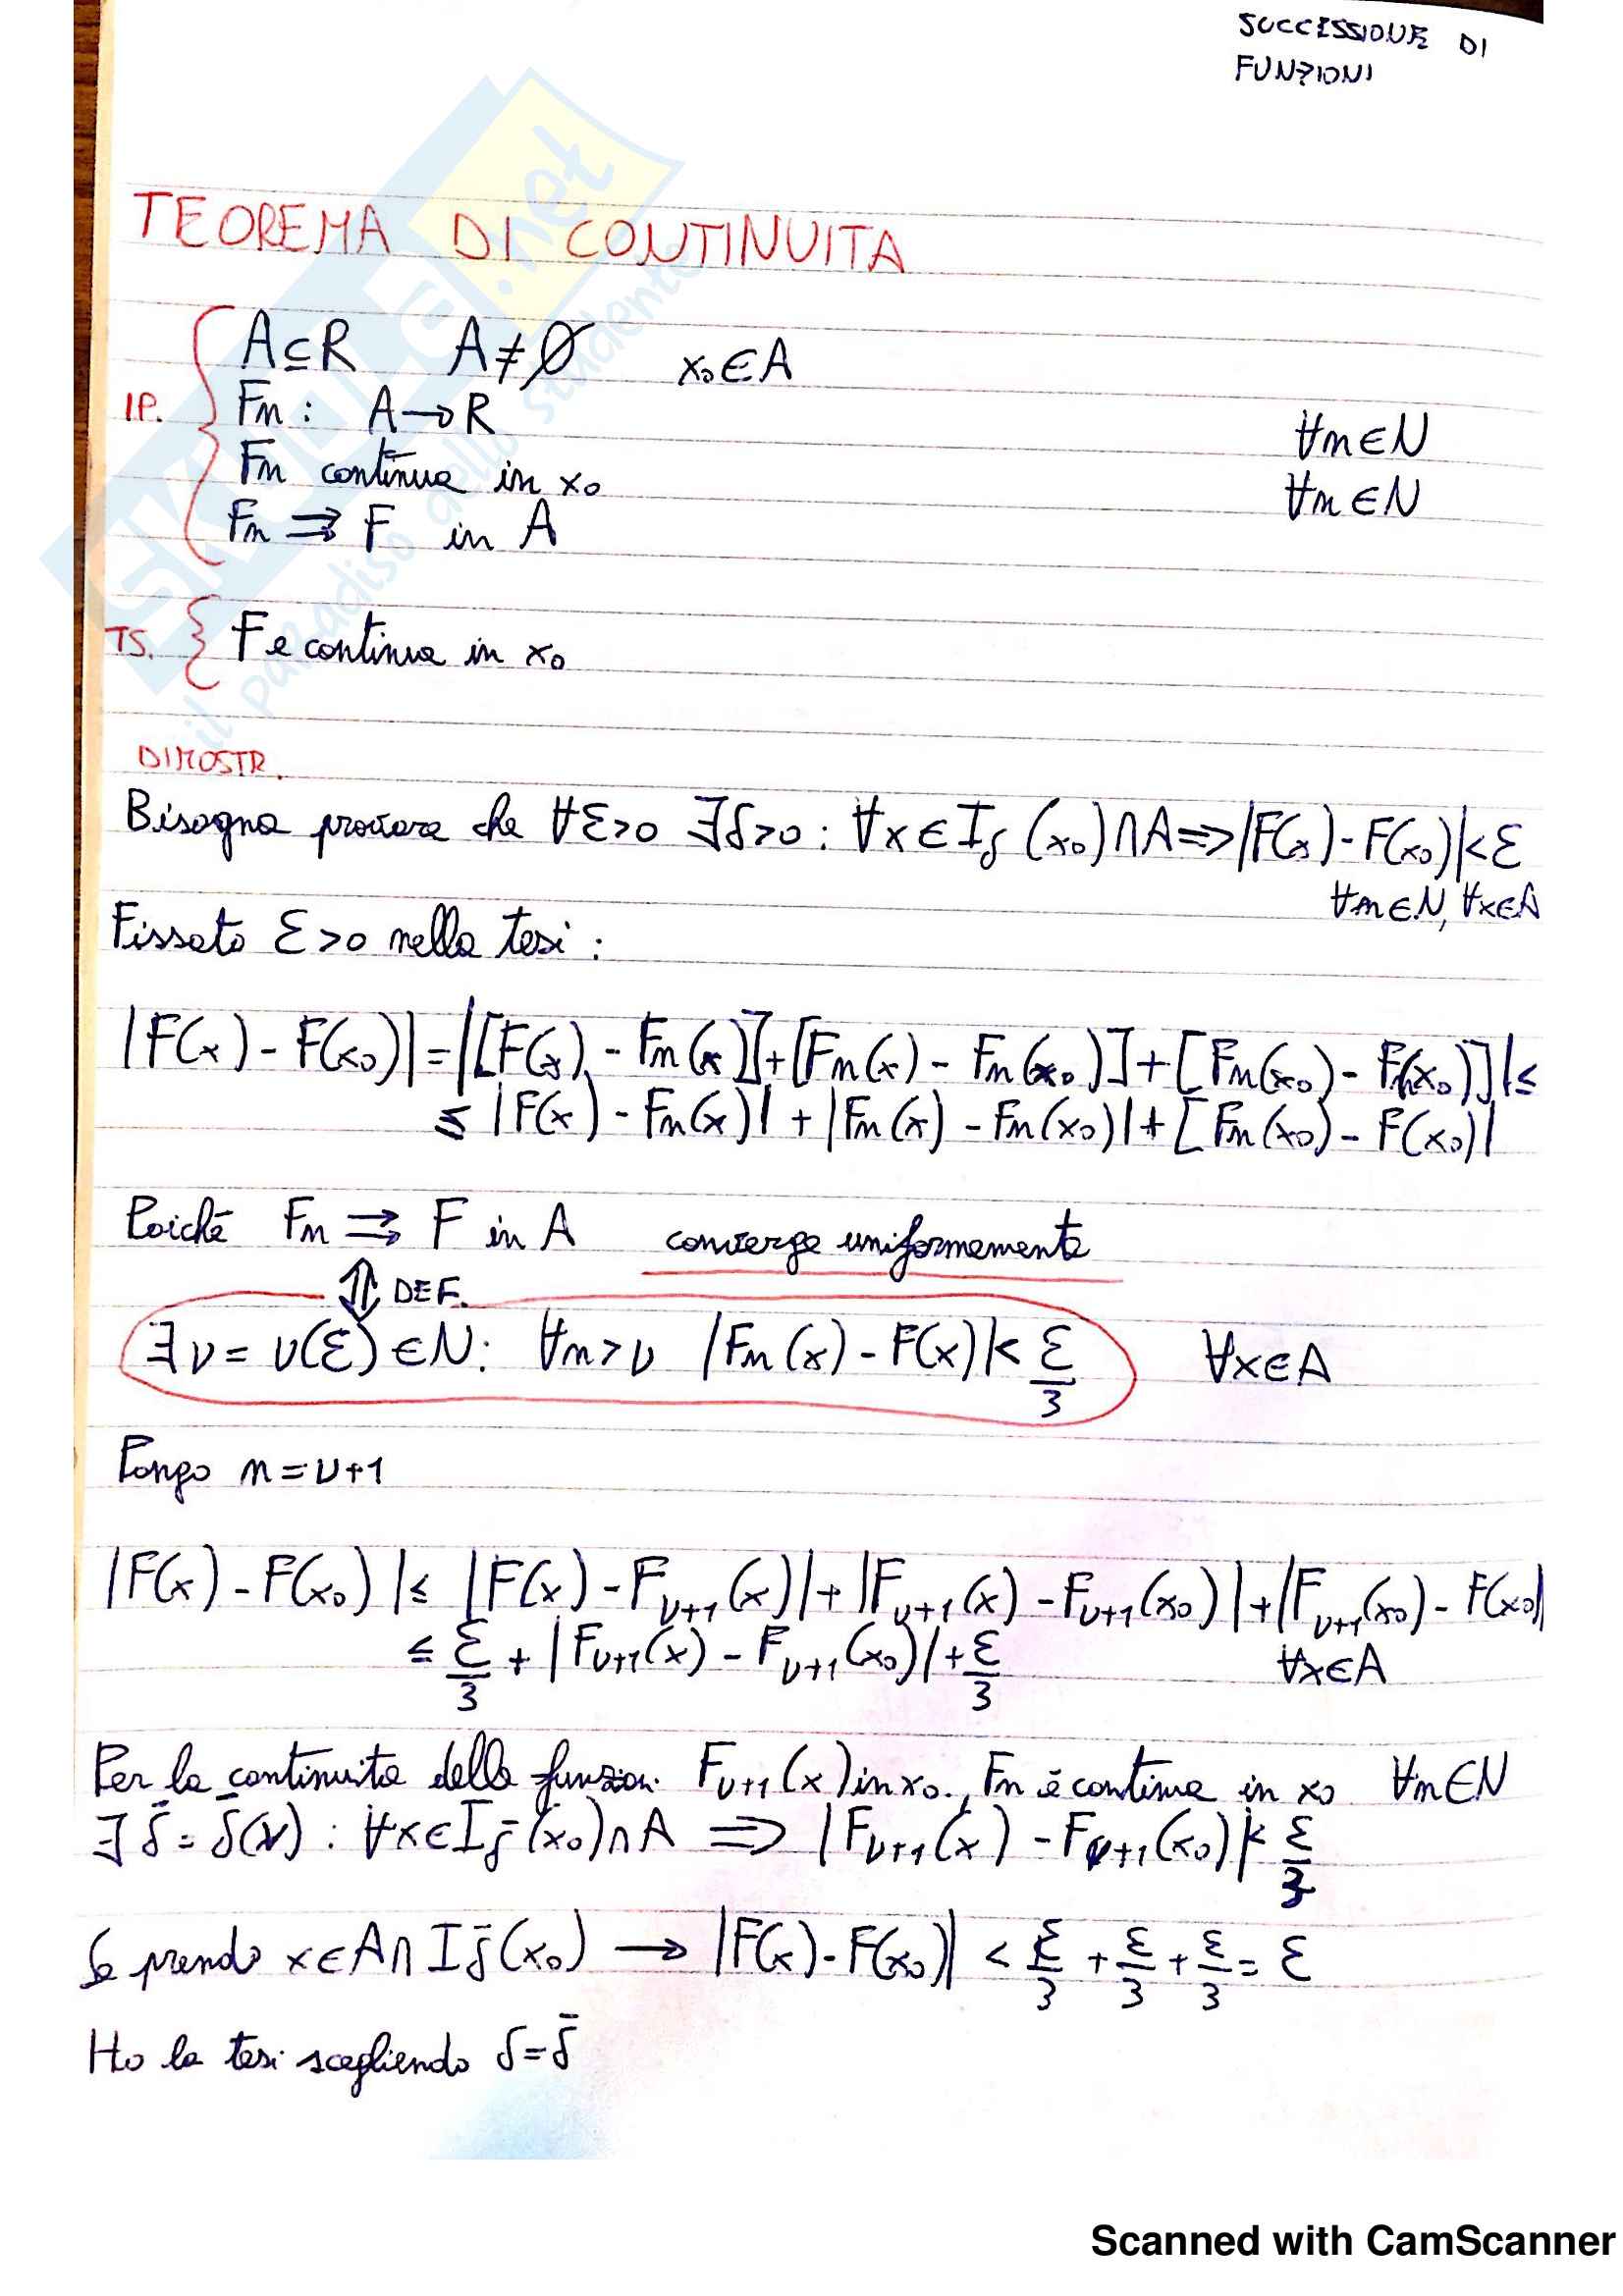 SUCCESSIONE DI
FUNZIONI
TEOREMA DI CONTINUITA
I.P.
A⊆R A≠∅ x₀∈A
Fn : A→R ∀n∈N
Fn continua in x₀ ∀n∈N
Fn ⇉ F in A
TS. { F e continua in x₀
DIMOSTR.
Bisogna provare che ∀ε>0 ∃δ>0 : ∀x∈Iδ(x₀)∩A=>|F(x)-F(x₀)|<ε
∀n∈N, ∀x∈A
Fissato ε>0 nella tesi :
|F(x)-F(x₀)|=|[F(x)-Fn(x)]+[Fn(x)-Fn(x₀)]+[Fn(x₀)-F(x₀)]|≤
≤ |F(x)-Fn(x)|+|Fn(x)-Fn(x₀)|+[Fn(x₀)-F(x₀)|
Poichè Fn ⇉ F in A converge uniformemente
⇕ DEF.
∃ν=ν(ε)∈N: ∀n>ν |Fn(x)-F(x)|< ε/3 ∀x∈A
Pongo n=ν+1
|F(x)-F(x₀)|≤ |F(x)-Fν+1(x)|+|Fν+1(x)-Fν+1(x₀)|+|Fν+1(x₀)-F(x₀)|
≤ ε/3 + |Fν+1(x)-Fν+1(x₀)|+ε/3 ∀x∈A
Per la continuita della funzion. Fν+1(x) in x₀., Fn è continua in x₀ ∀n∈N
∃ δ̄=δ̄(ν) : ∀x∈Iδ̄(x₀)∩A => |Fν+1(x)-Fν+1(x₀)|< ε/3
Se prendo x∈A∩Iδ̄(x₀) → |F(x)-F(x₀)| < ε/3 + ε/3 + ε/3 = ε
Ho la tesi scegliendo δ=δ̄
SKUOLA.net
il paradiso dello studente
Scanned with CamScanner